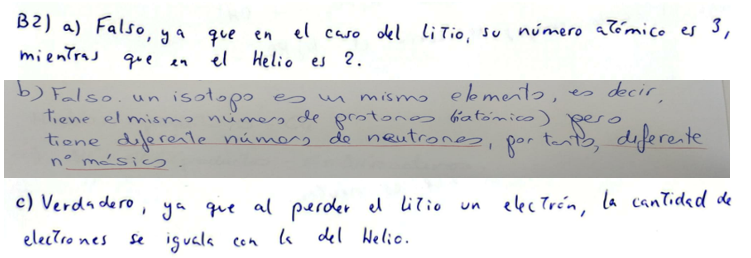 B2) a) Falso, ya que en el caso del litio, su número atómico es 3,
mientras que en el Helio es 2.
b) Falso. un isotopo es un mismo elemento, es decir,
tiene el mismo número de protones (nºatómico) pero
tiene diferente número de neutrones, por tanto, diferente
nº másico.
c) Verdadero, ya que al perder el litio un electrón, la cantidad de
electrones se iguala con la del Helio.